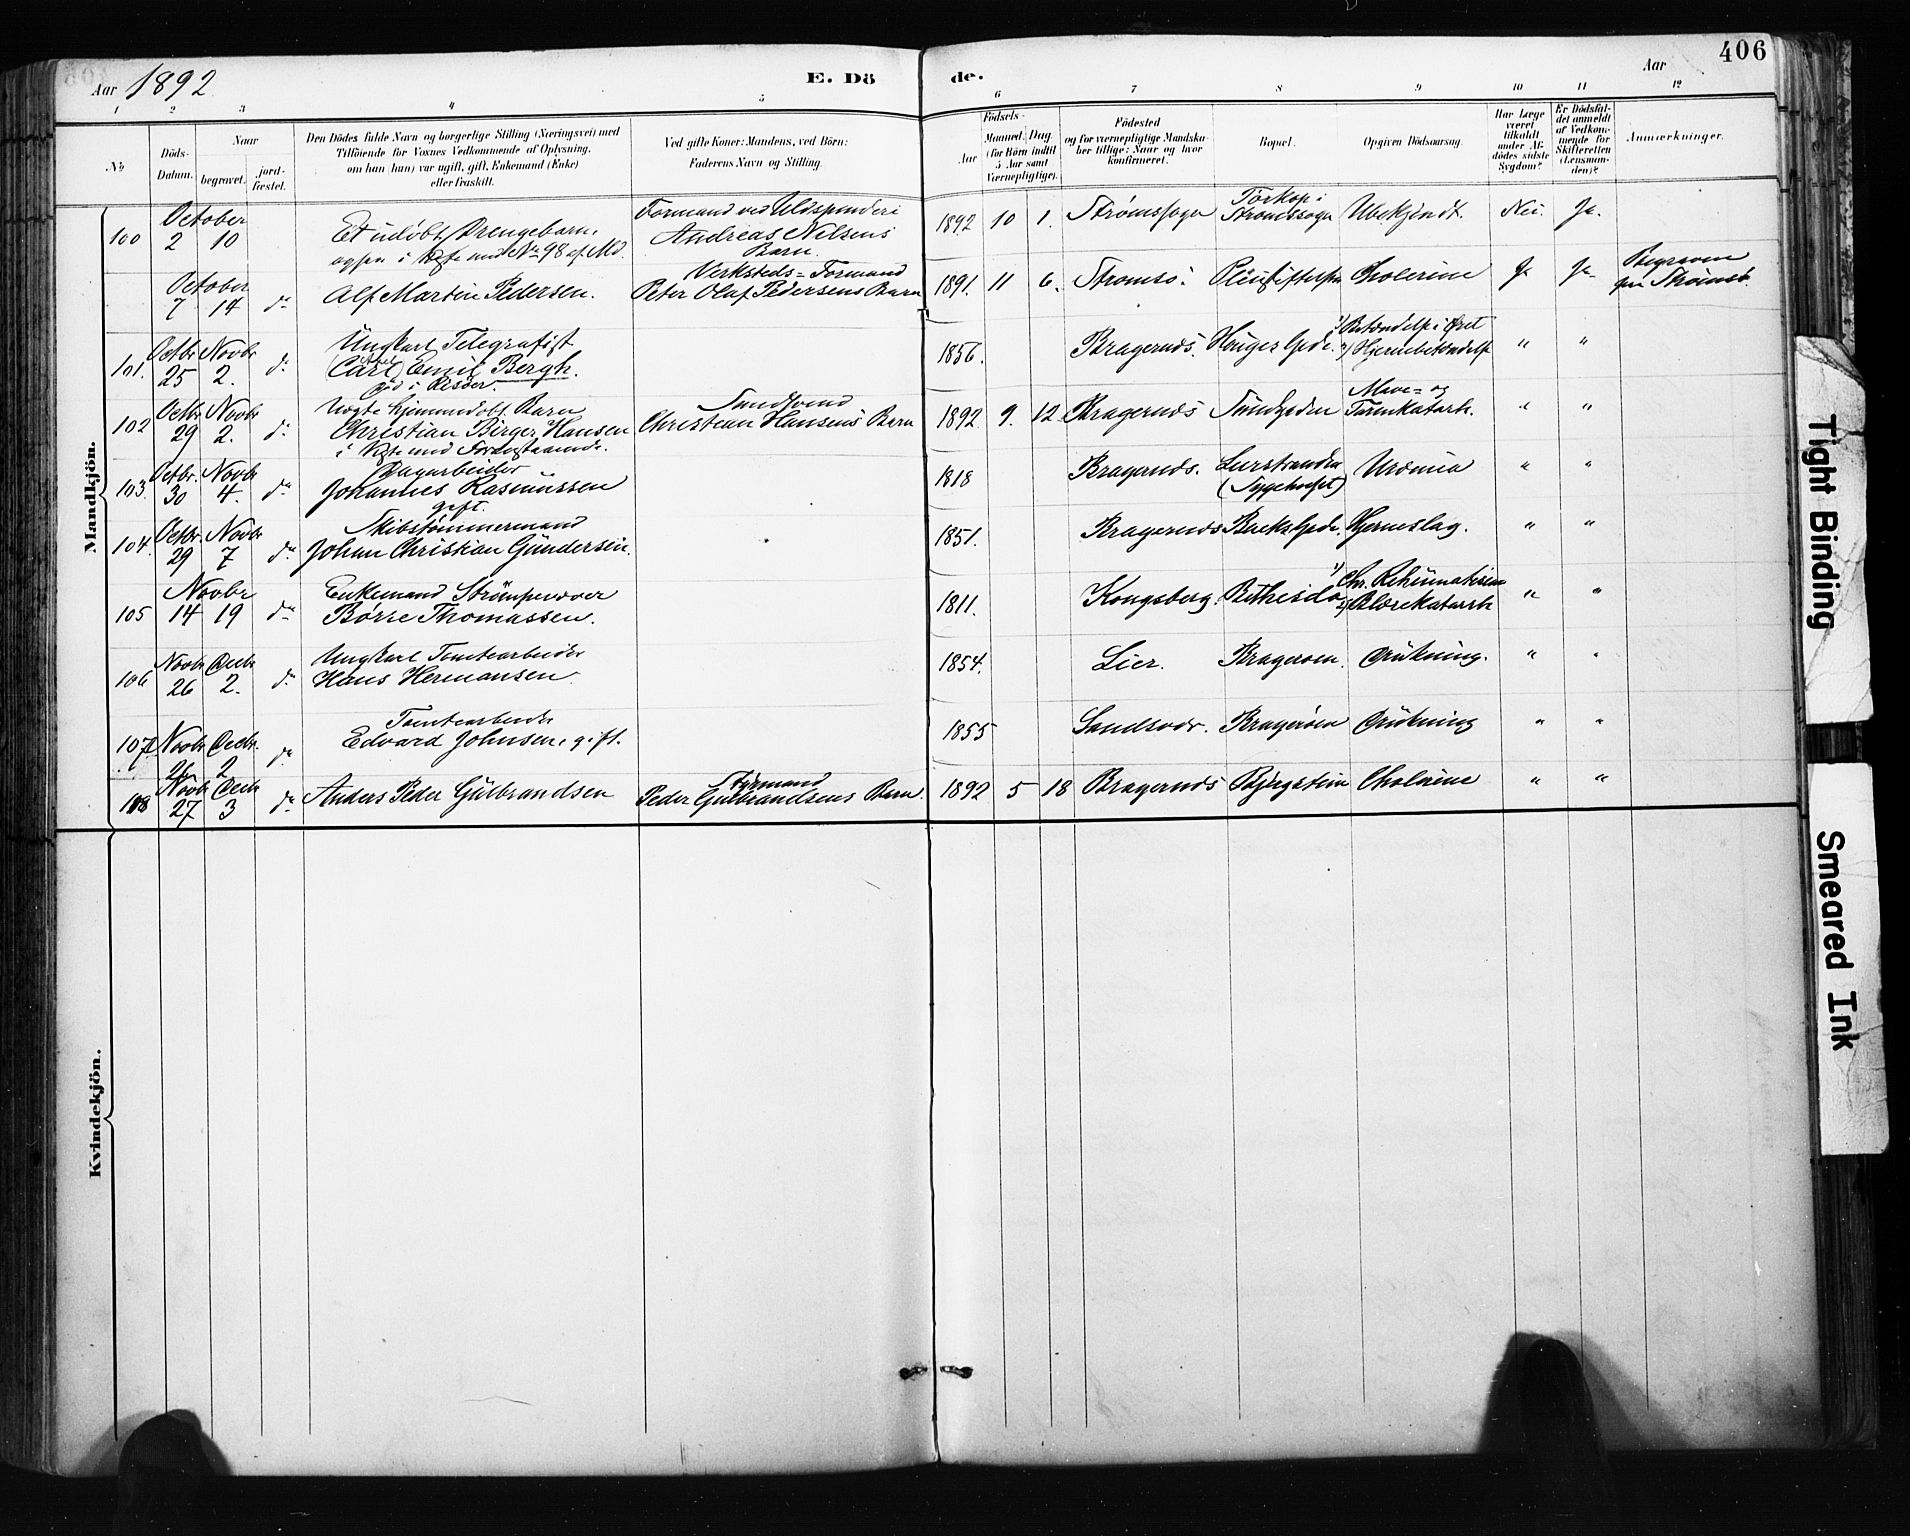 406
Aar 1892
E. Dö
de.
Aar
1 2 3 4 5 6 7 8 9 10 11 12
No
Döds-
Datum.
Naar
begravet.
jord-
fæstet.
Den Dödes fulde Navn og borgerlige Stilling (Næringsvei) med
Tilföiende for Voxnes Vedkommende af Oplysning,
om han (hun) var ugift, gift, Enkemand (Enke)
eller fraskilt.
Ved gifte Koner: Mandens, ved Börn:
Faderens Navn og Stilling.
Födsels-
Aar
Maaned. Dag.
(for Börn indtil
5 Aar samt
Værnepligtige).
Födested
og for værnepligtige Mandska-
ber tillige: Naar og hvor
konfirmeret.
Bopæl.
Opgiven Dödsaarsag.
Har Læge
været
tilkaldt
under Af-
dödes sidste
Sygdom?
Er Dödsfal-
det anmeldt
af Vedkom-
mende for
Skifteretten
(Lensman-
den)?
Anmærkninger.
Mandkjön.
100
October
2 10
Et udöbt Drengebarn,
No 98
Formand ved Uldspinderi
Andreas Nilsens
Barn
1892 10 1. Strømssogn
Torkop i
Strømssogn
Ubekjendt. Nei. Ja.
October
7 14 do
Alf Martin Pedersen.
Verksteds-Formand
Peter Olaf Pedersens Barn
1891. 11 6. Strømsö. Cholerine Ja Ja
Begraven
paa Strømsö.
101.
Octbr Novbr
25 2. do
Ungkarl Telegrafist
Carl (Axel) Emil Bergh.
fød i Risöer.
1856. Bragernæs. Hauges Gade.
1) Betændelse i Øret
2) Hjernebetændelse " "
102
Octbr Novbr
29 2. do
Uægte hjemmedøbt Barn
Christian Birger Hansen
i Vægte med Foranstaaende.
Christian Hansens Barn
1892. 9. 12. Bragernæs
Mave- og
Tarmkatarh. " "
103.
Octbr. Novbr
30 4. do
Dagarbeider
Johannes Rasmussen
gift.
1818 Bragernæs.
Leerstranden
(Sygehuset)
Uræmia " "
104.
Octbr. Novbr
29 7 do
Skibstømmermand
Johan Christian Gundersen.
1851. Bragernæs Hjerneslag. " "
105
Novbr
14 19 do
Enkemand Strömpevæver
Börre Thomassen.
1811. Kongsberg. Bethesda
1) Chr. Rheumatisme
2) Blærekatarrh " "
106
Novbr Decbr
26 2. do
Ungkarl Tomtearbeider
Hans Hermansen.
1854. Lier. Bragerøen. Drukning. " "
107.
Novbr Decbr.
26 2 do
Tomtearbeider
Edvard Johnsen, gift.
1855 Sandsvær. Bragerøen Drukning " "
108
Novbr Decbr
27 3 do
Anders Peder Gulbrandsen
Styrmand
Peder Gulbrandsens Barn.
1892 5 18 Bragernæs Bjergstien Cholerine " "
Kvindekjön.
Tight Binding
Smeared Ink